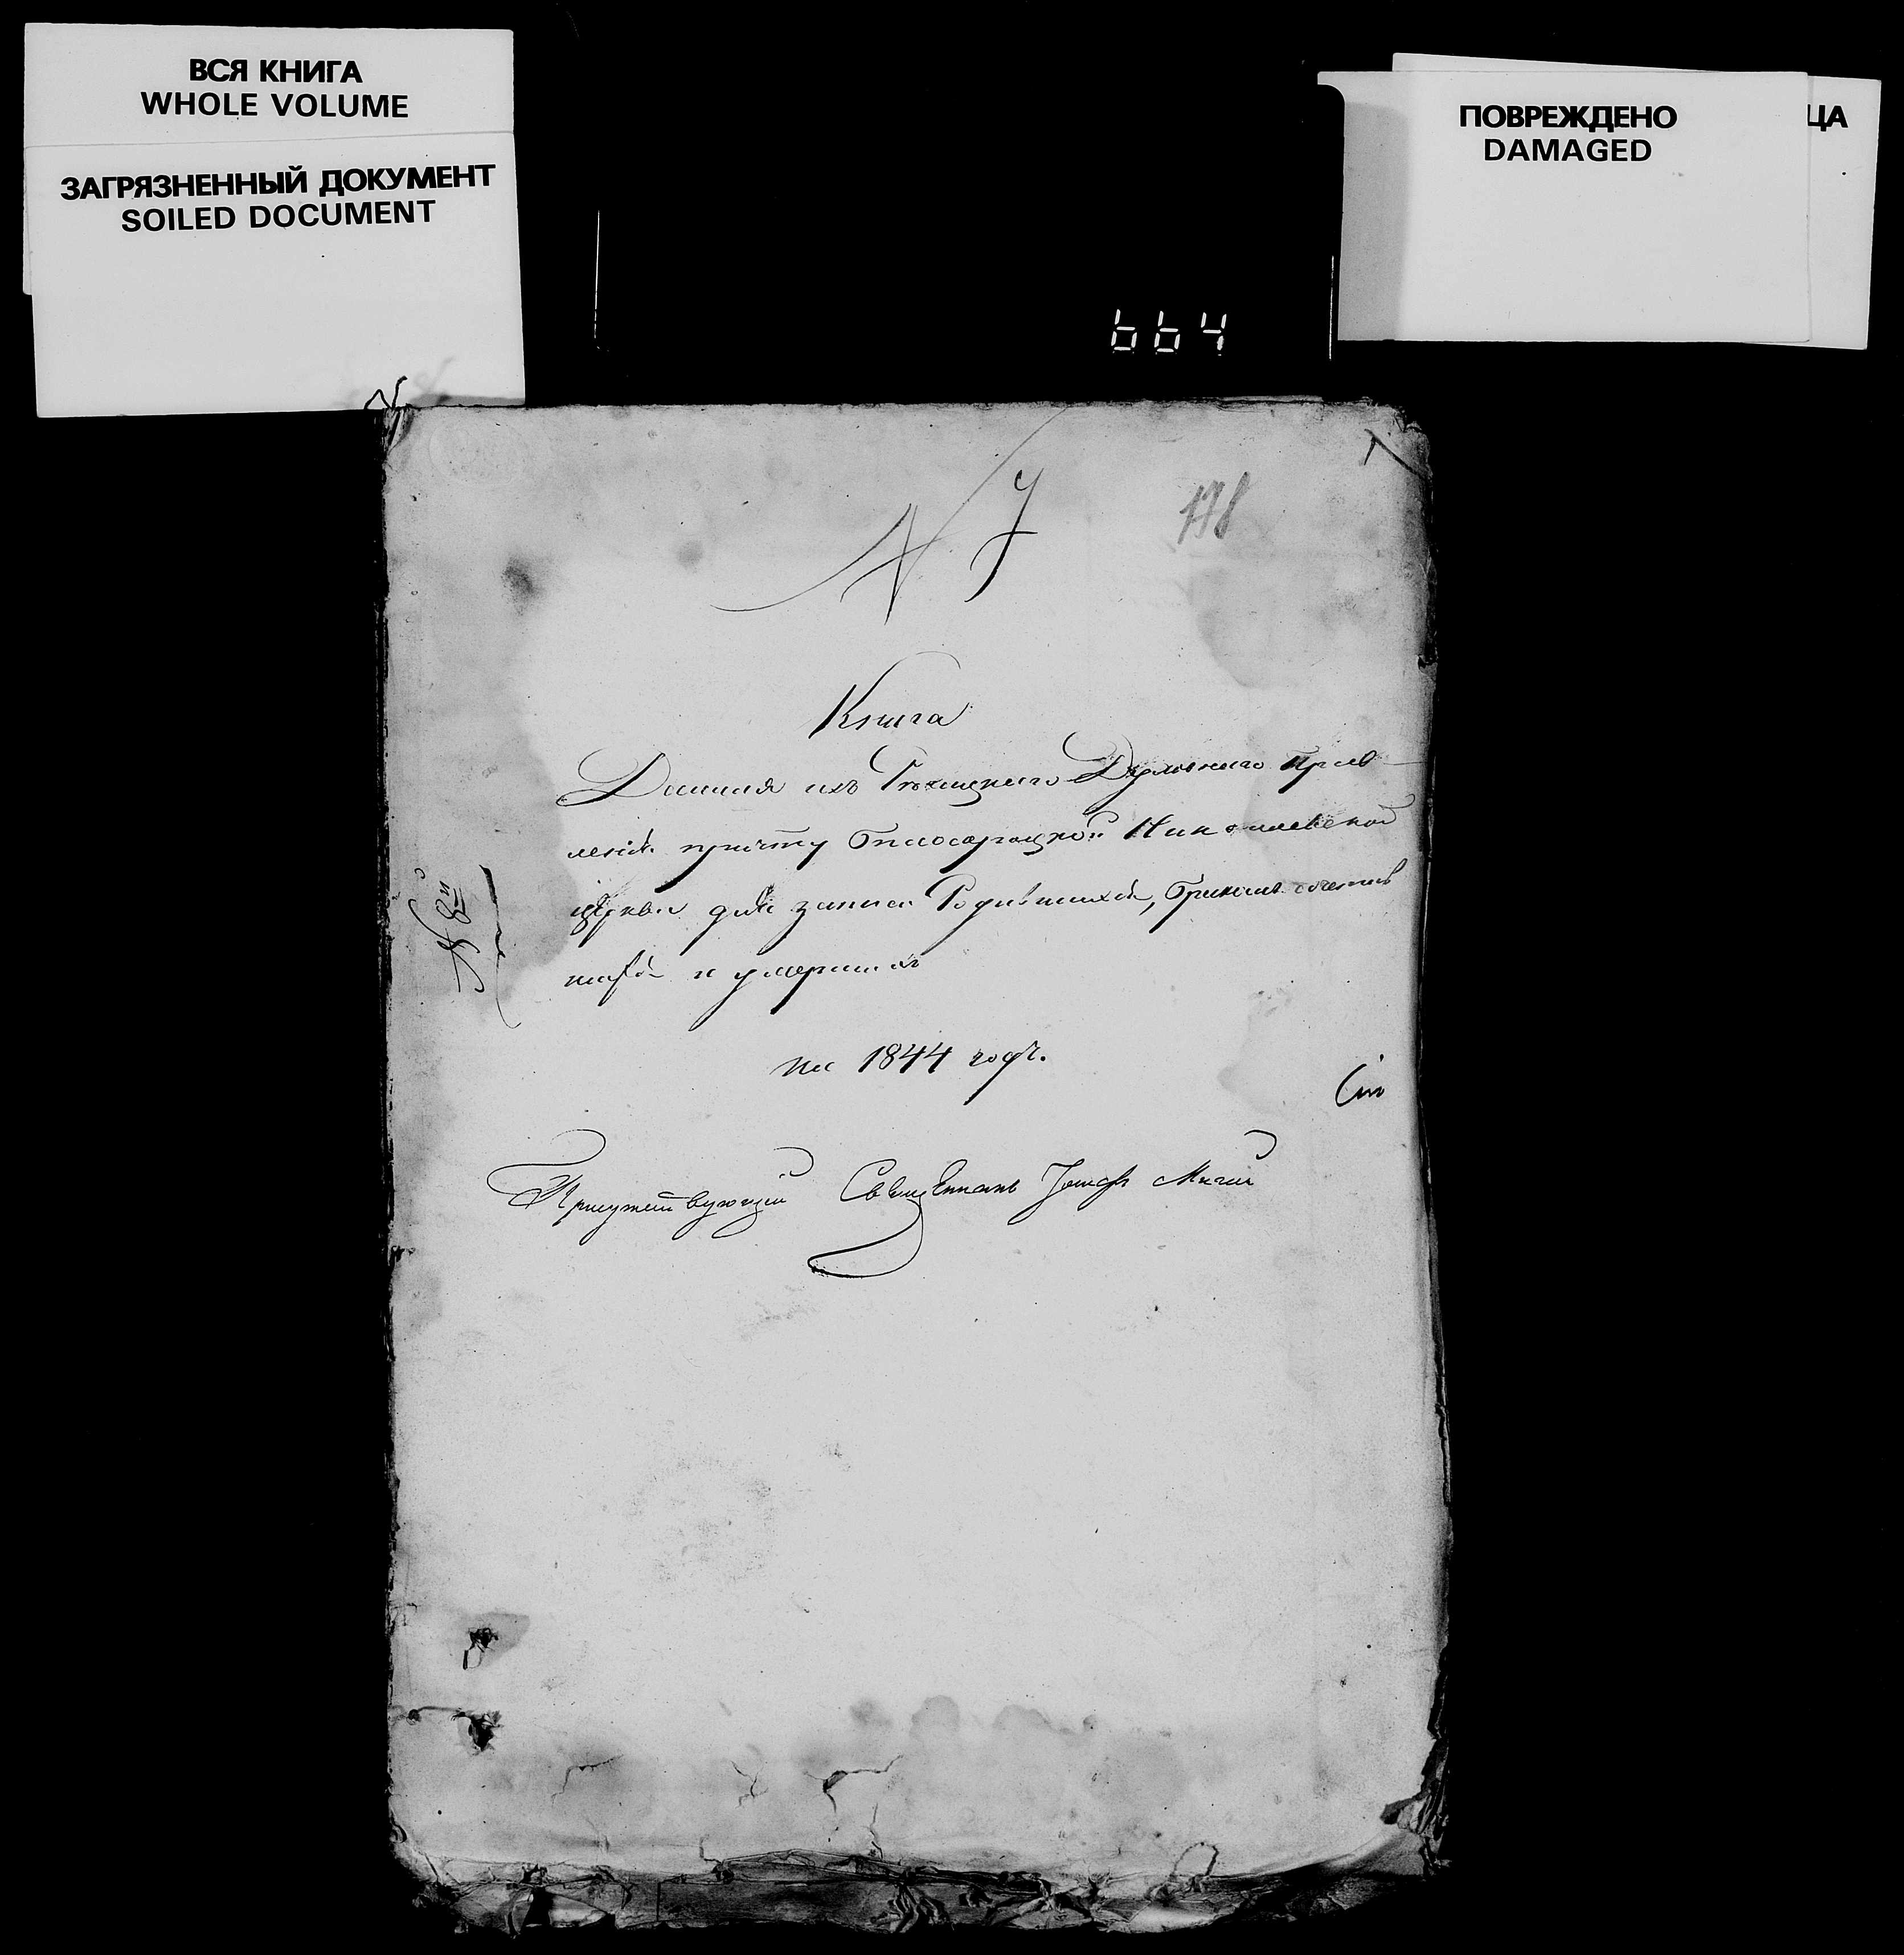 ВСЯ КНИГА
WHOLE VOLUME
ЗАГРЯЗНЕННЫЙ ДОКУМЕНТ
SOILED DOCUMENT
ПОВРЕЖДЕНО
DAMAGED
ЦА
664
N 7
178
Книга
Данная изъ Духовнаго Прав
ленія причту Николаевской
церкви для записи Родившихся, Бракомъ сочетав
шихся и умершихъ
N 8й
на 1844 годъ.
Присутствующій Священникъ